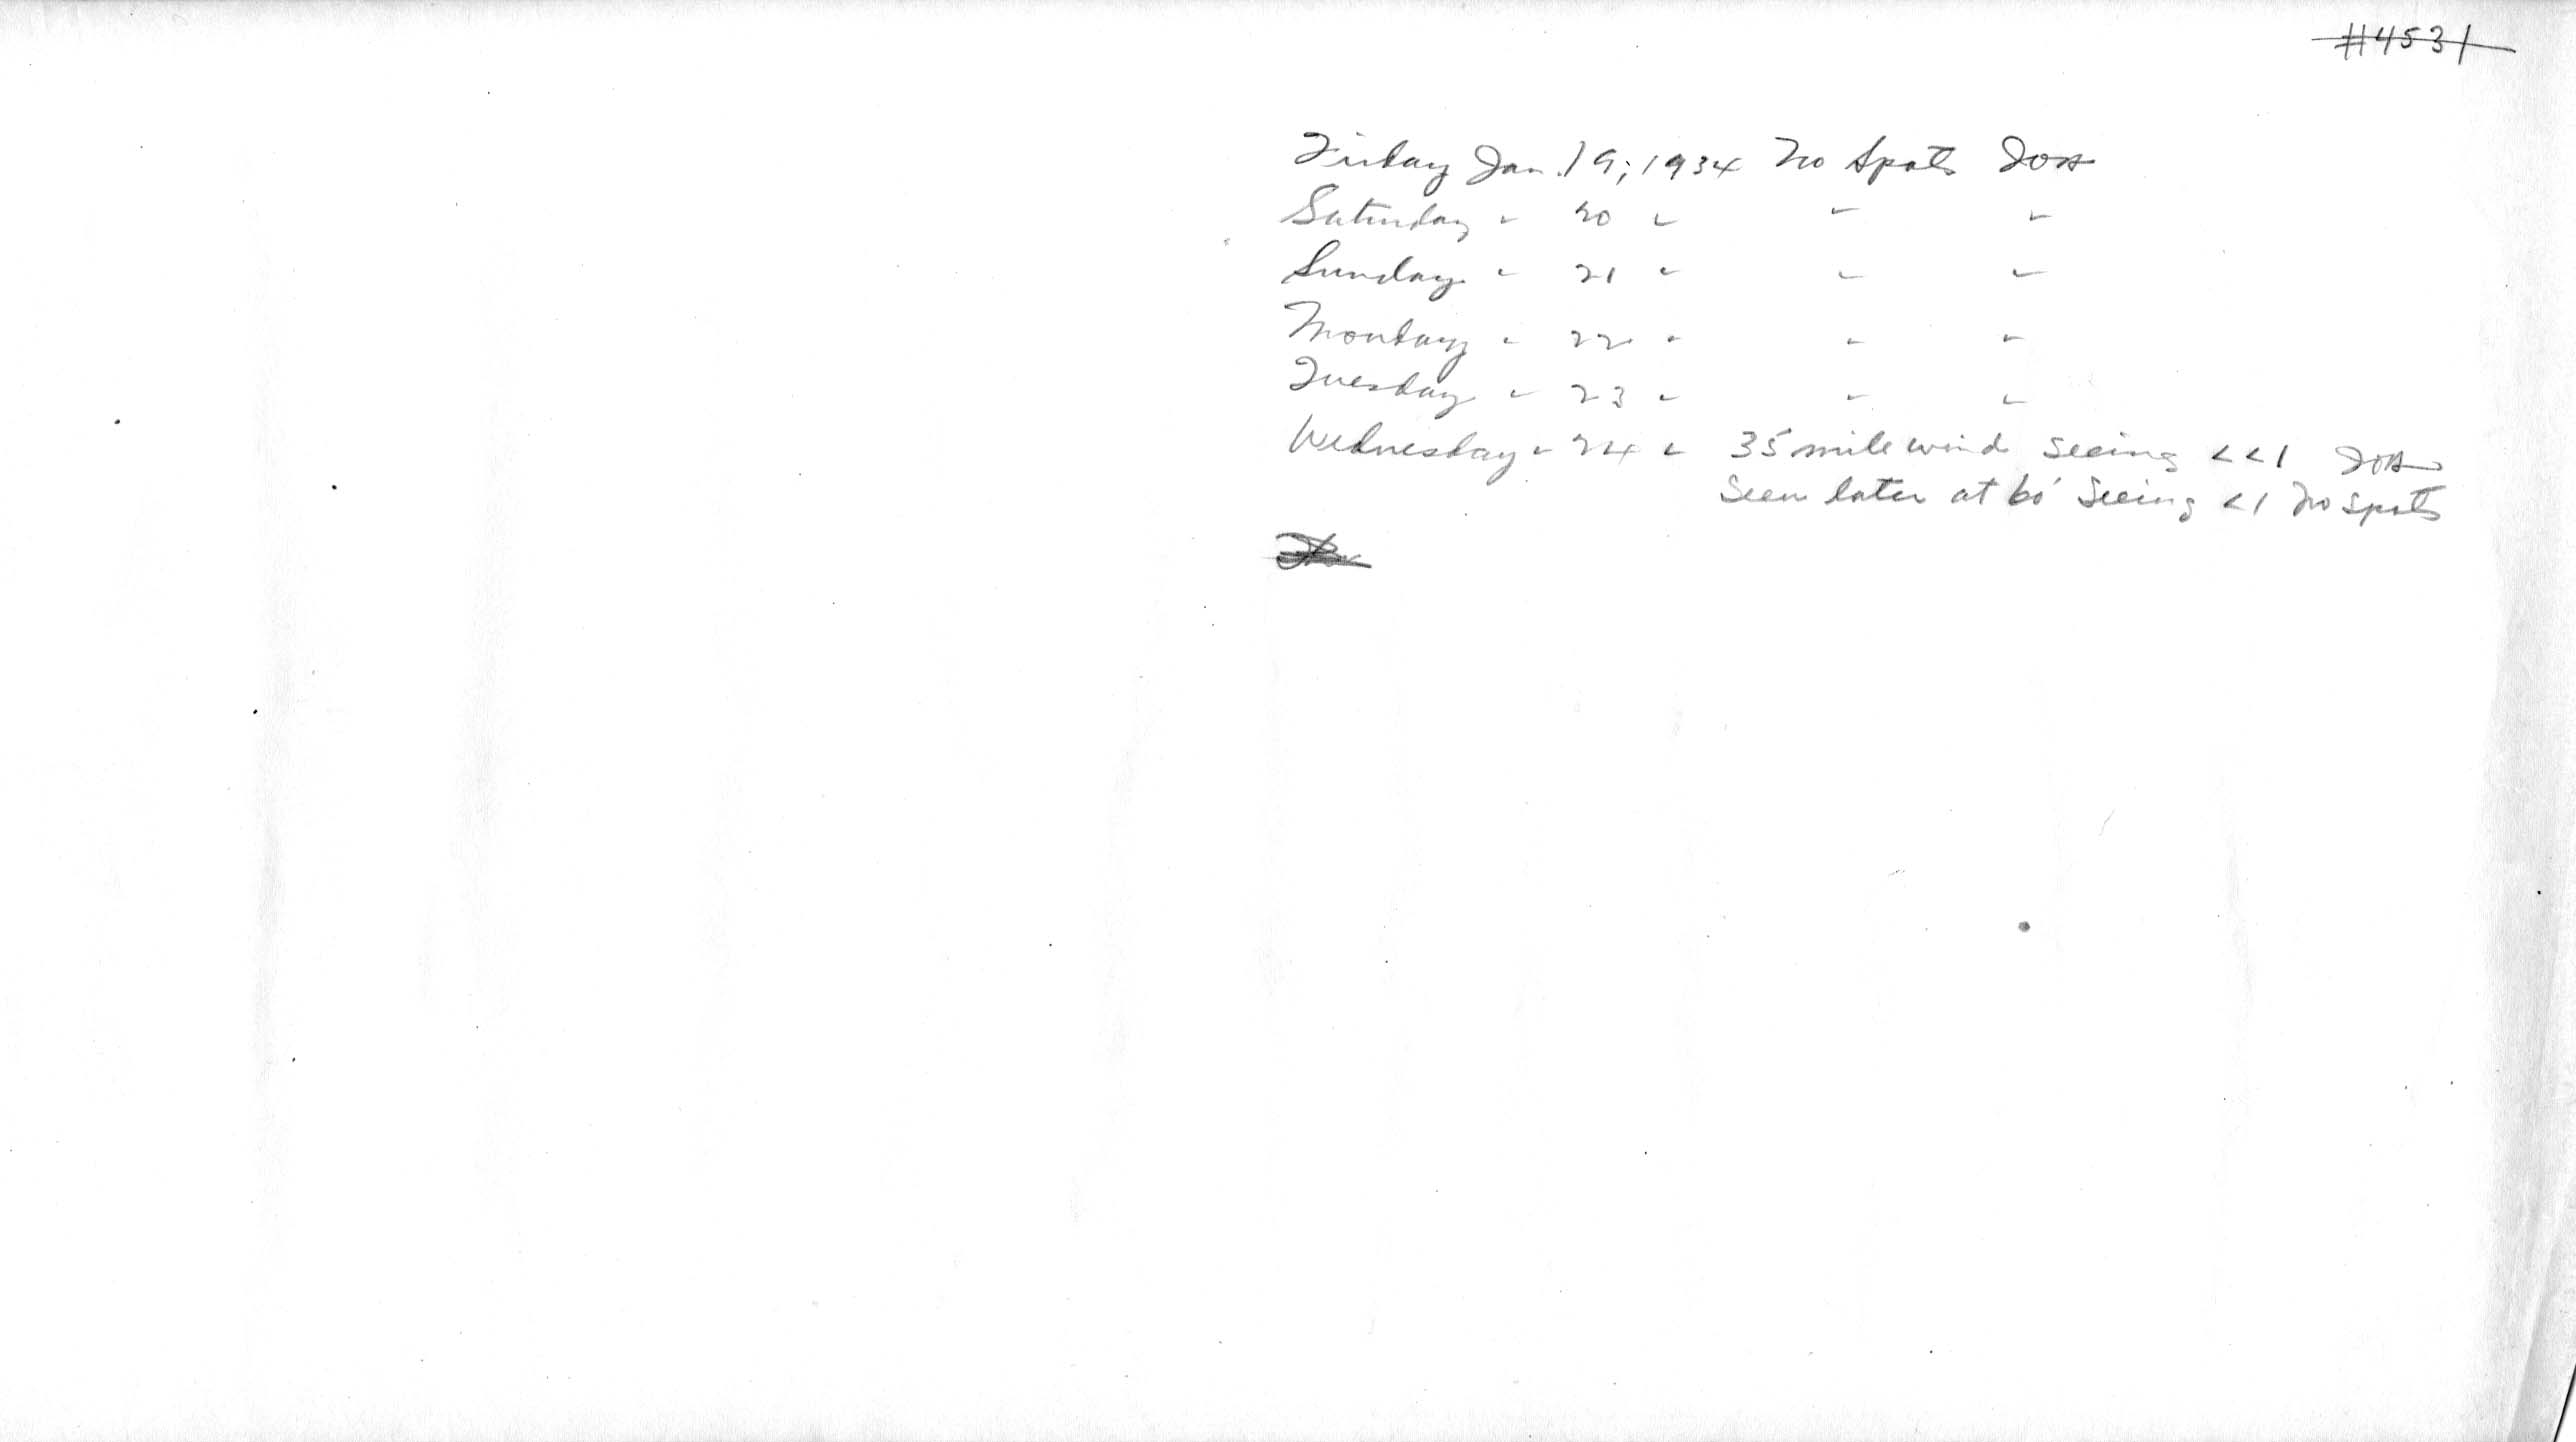 #4531
Friday Jan. 19, 1934 No Spots
Saturday " 20 " " "
Sunday " 21 " " "
Monday " 22 " " "
Tuesday " 23 " " "
Wednesday " 24 " 35 mile wind seeing <<1
Seen later at 60' seeing <1 No spots